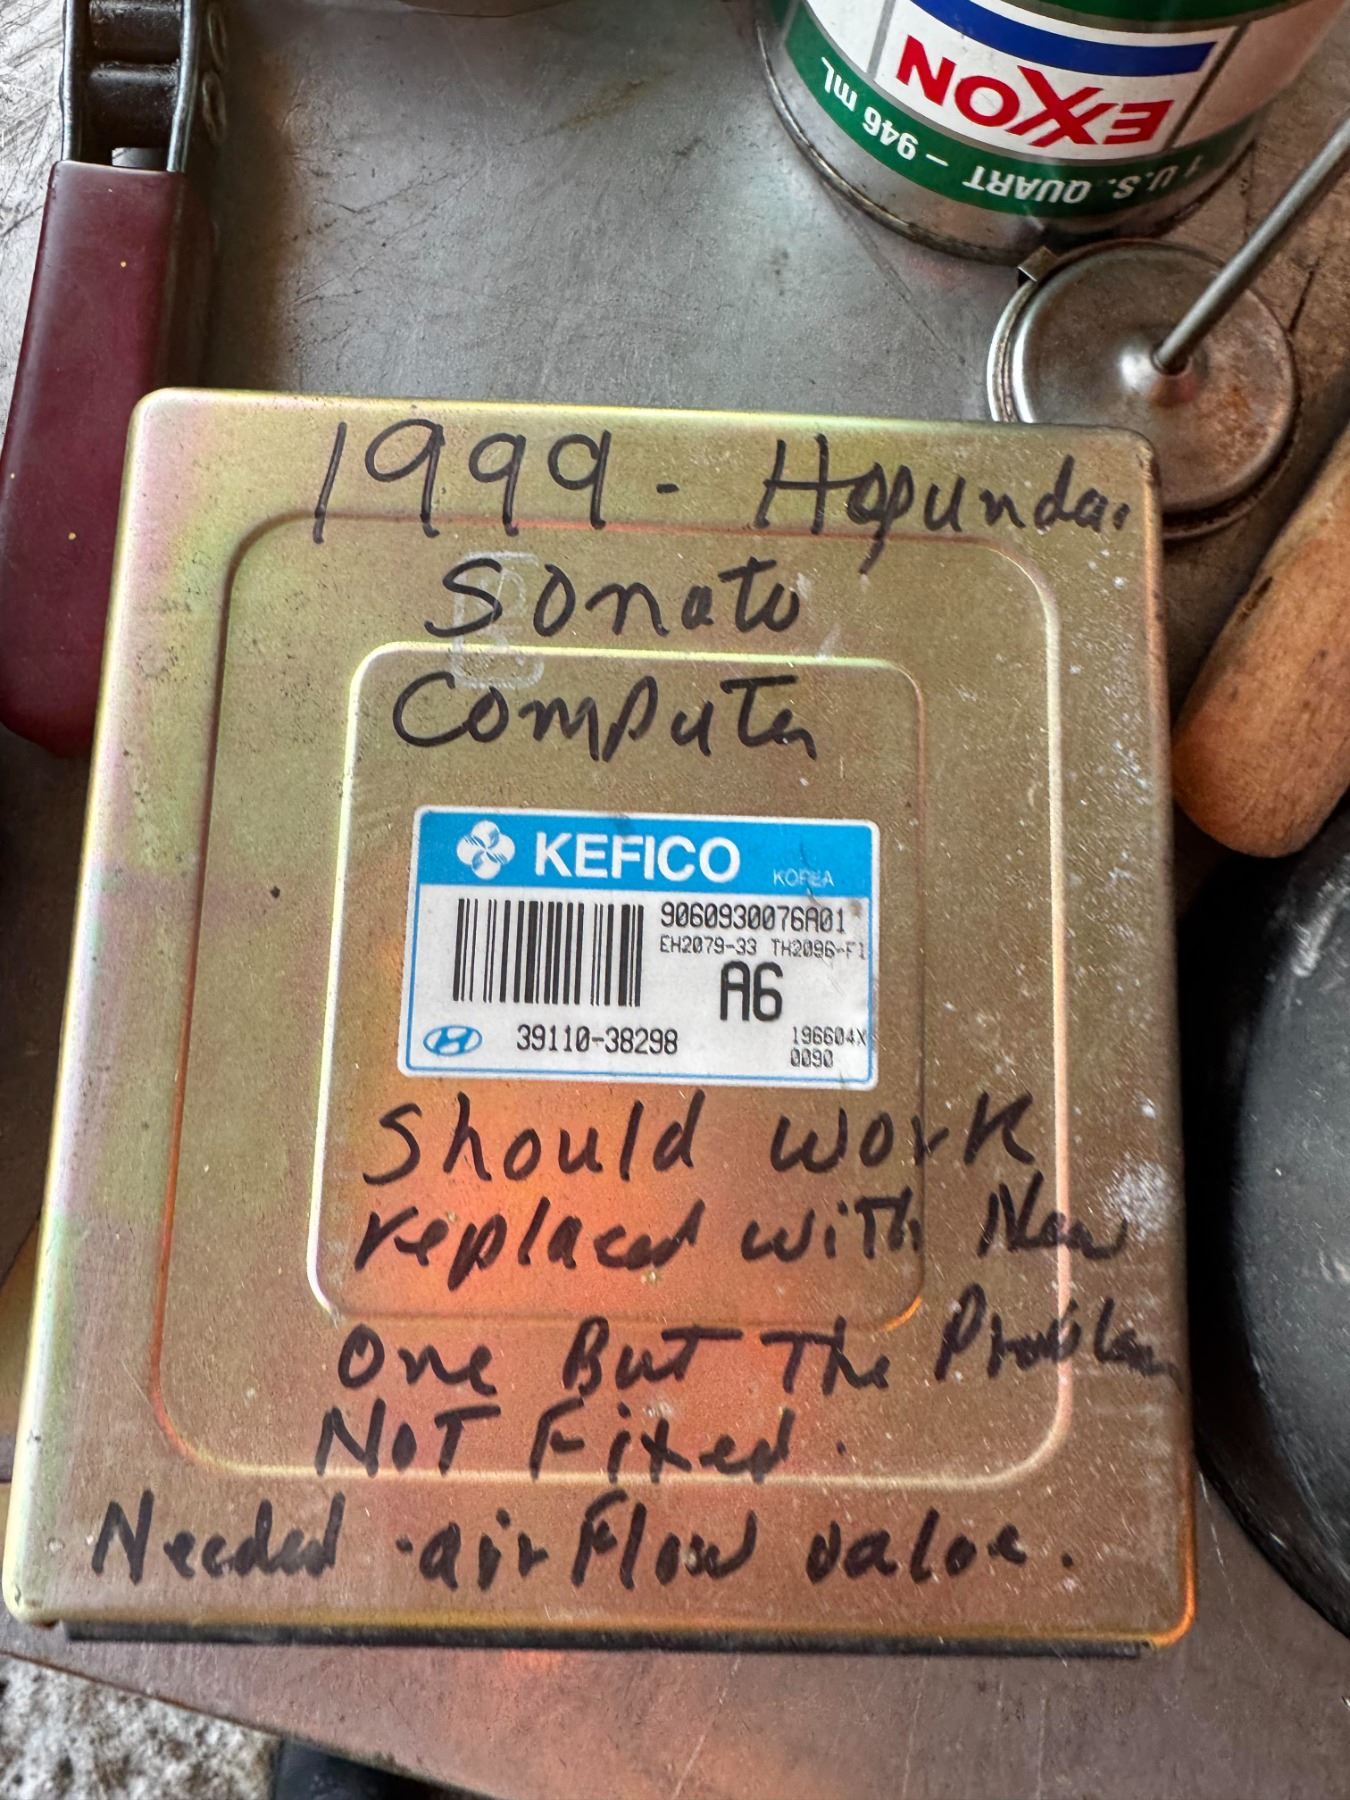 EXXON
1 U.S. QUART – 946 mL
1999 - Hopunda.
Sonato
Computer
KEFICO
KOREA
9060930076A01
EH2079-33 TH2096-F1
A6
39110-38298
196604X
0090
Should work
replaced with New
One But The Problem
NOT Fixed.
Needed air Flow valve.